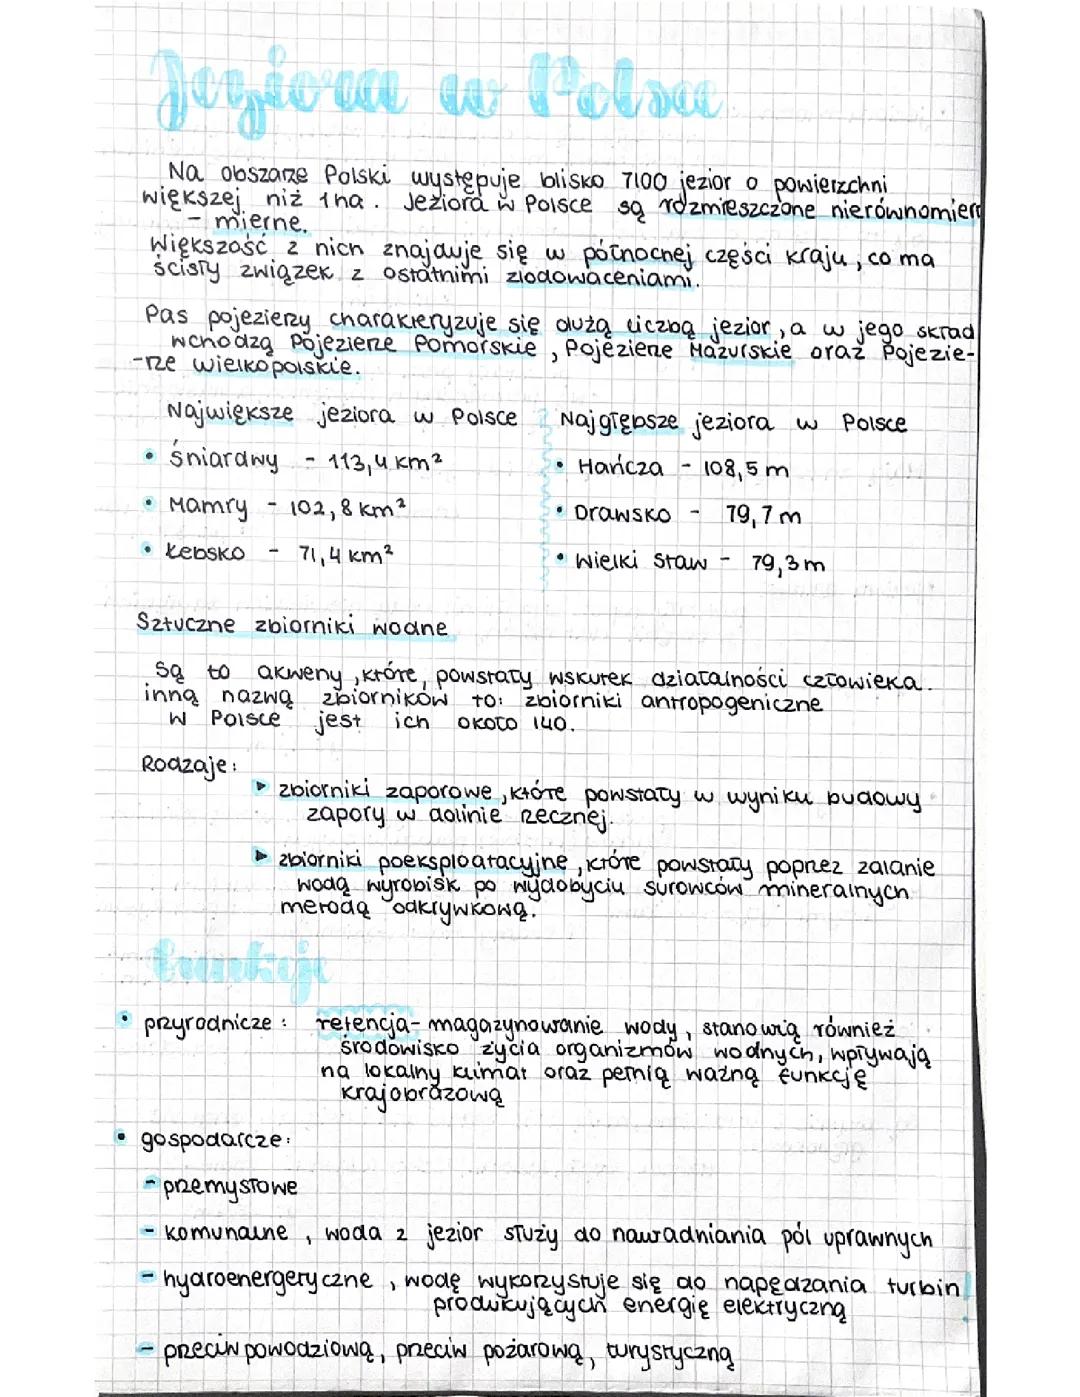 Jeziora w Polsce
Na obszarze Polski występuje blisko 7100 jezior o powierzchni
większej niż 1ha. Jeziora w Polsce są rozmieszczone nierównomier
- miernie.
Większość z nich znajduje się w północnej części kraju, co ma
ścisły związek z ostatnimi zlodowaceniami.
Pas pojezierzy charakteryzuje się dużą liczbą jezior, a w jego skład
wchodzą Pojezierze Pomorskie, Pojezierze Mazurskie oraz Pojezie-
-rze wielkopolskie.
Największe jeziora w Polsce
• śniardwy - 113,4 km²
• Mamry - 102,8 km²
• Łebsko - 71,4 km²
Najgłębsze jeziora w Polsce
• Hańcza - 108,5 m
• Drawsko - 79,7 m
• Wielki Staw - 79,3 m
Sztuczne zbiorniki wodne
Są to akweny, które, powstały wskutek działalności człowieka.
inną nazwą zbiorników to: zbiorniki antropogeniczne
W Polsce jest ich około 140.
Rodzaje:
▸ zbiorniki zaporowe, które powstały w wyniku budowy
zapory w dolinie rzecznej.
▸ zbiorniki poeksploatacyjne, które powstały poprzez zalanie
wodą wyrobisk po wydobyciu surowców mineralnych
metodą odkrywkową.
funkcje
• przyrodnicze: retencja - magazynowanie wody, stanowią również
środowisko życia organizmów wodnych, wpływają
na lokalny klimat oraz pełnią ważną funkcję
krajobrazową
• gospodarcze:
- przemysłowe
- komunalne, woda z jezior służy do nawadniania pól uprawnych
- hydroenergetyczne, wodę wykorzystuje się do napędzania turbin
produkujących energię elektryczną
- przeciw powodziową, przeciw pożarową, turystyczną